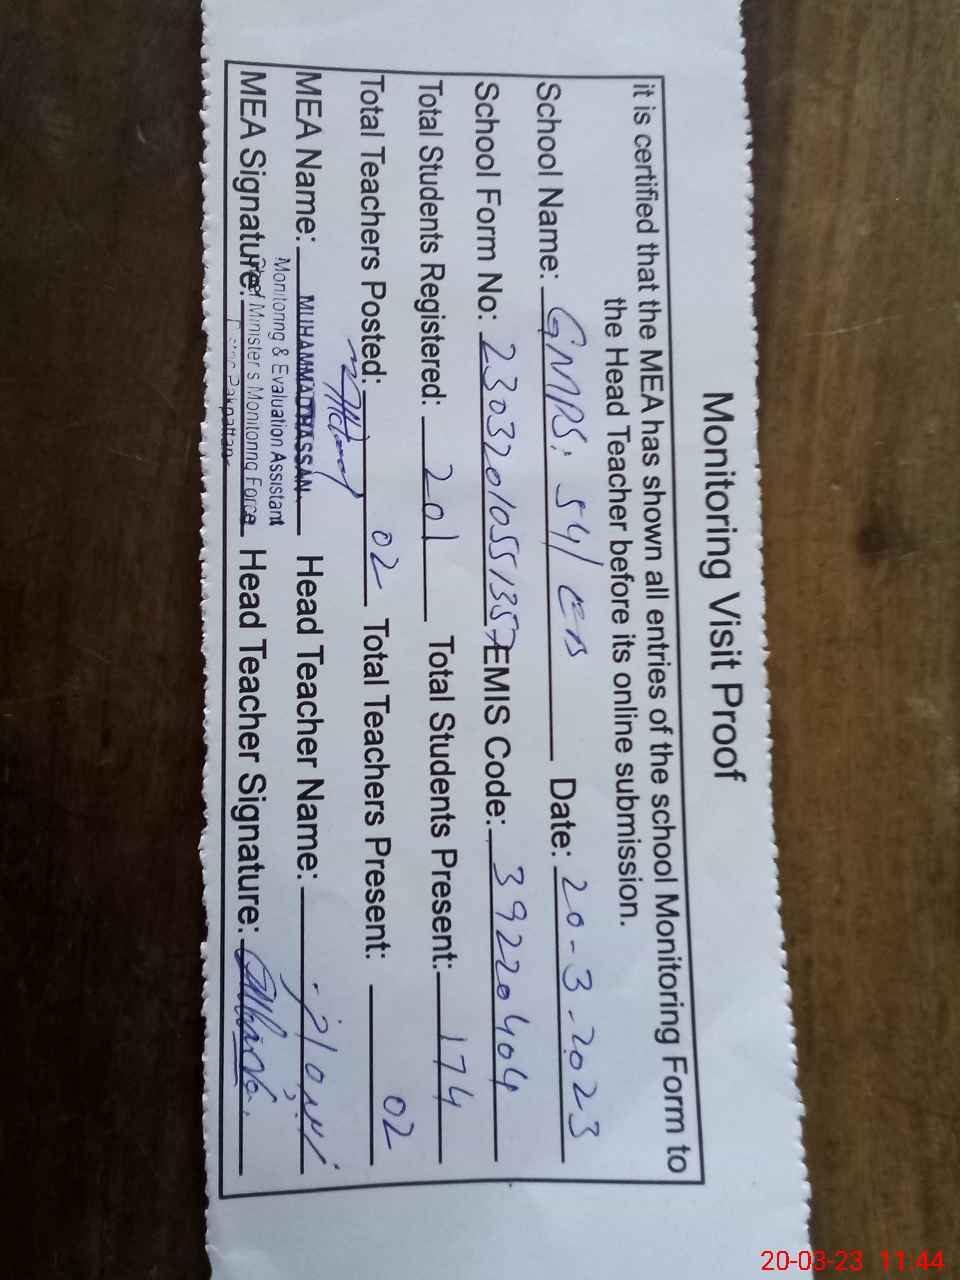 Monitoring Visit Proof
it is certified that the MEA has shown all entries of the school Monitoring Form to
the Head Teacher before its online submission.
School Name: GMPS; 54/EB Date: 20-3-2023
School Form No: 23032010551357 EMIS Code: 39220404
Total Students Registered: 201 Total Students Present: 174
Total Teachers Posted: 02 Total Teachers Present: 02
MEA Name: MUHAMMAD HASSAN Head Teacher Name:
Monitoring & Evaluation Assistant
MEA Signature: Chief Minister's Monitoring Force Head Teacher Signature:
Pakpattan
20-03-23 11:44